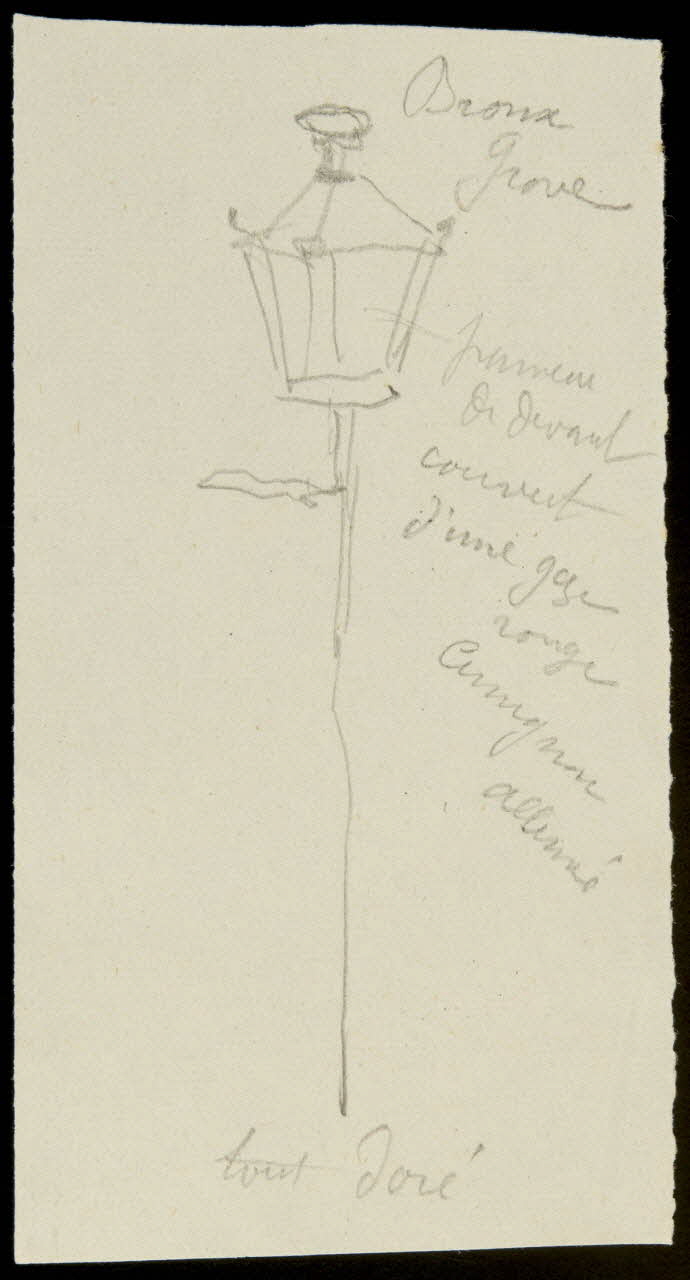 Bronx
Grove
panneau
de devant
couvert
d'une gaze
rouge
lumignon
allumé
tout doré